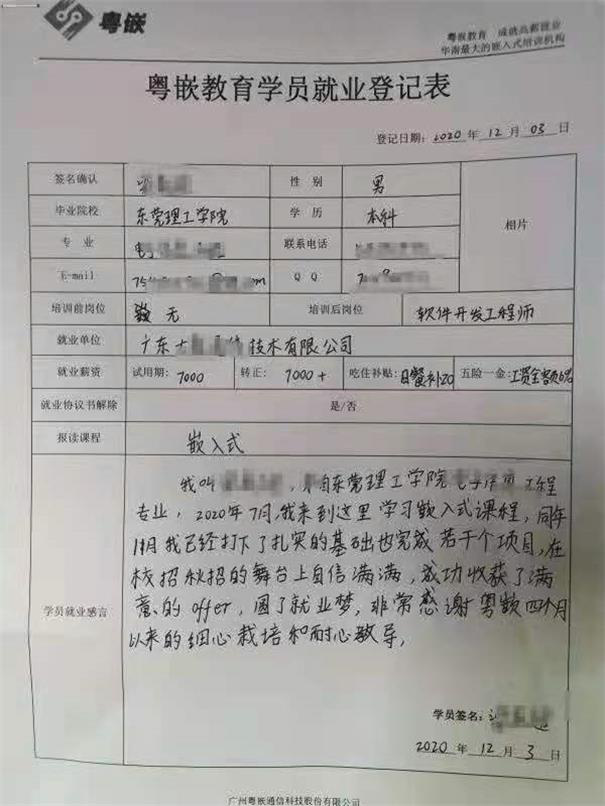 粤嵌
粤嵌教育 成就高薪就业
华南最大的嵌入式培训机构
粤嵌教育学员就业登记表
登记日期：2020 年 12 月 03 日
签名确认 性 别 男
毕业院校 东莞理工学院 学 历 本科 相片
专 业 联系电话
E-mail Q Q
培训前岗位 无 培训后岗位 软件开发工程师
就业单位 广东 技术有限公司
就业薪资 试用期：7000 转正：7000+ 吃住补贴：日餐补20 五险一金：工资全额6%
就业协议书解除 是/否
报读课程 嵌入式
我叫 ，来自东莞理工学院 工程
专业，2020年7月，我来到这里学习嵌入式课程，同年
11月我已经打下了扎实的基础也完成若干个项目，在
校招秋招的舞台上自信满满，成功收获了满
学员就业感言 意的offer，圆了就业梦，非常感谢粤嵌四个月
以来的细心栽培和耐心教导，
学员签名：
2020 年 12 月 3 日
广州粤嵌通信科技股份有限公司